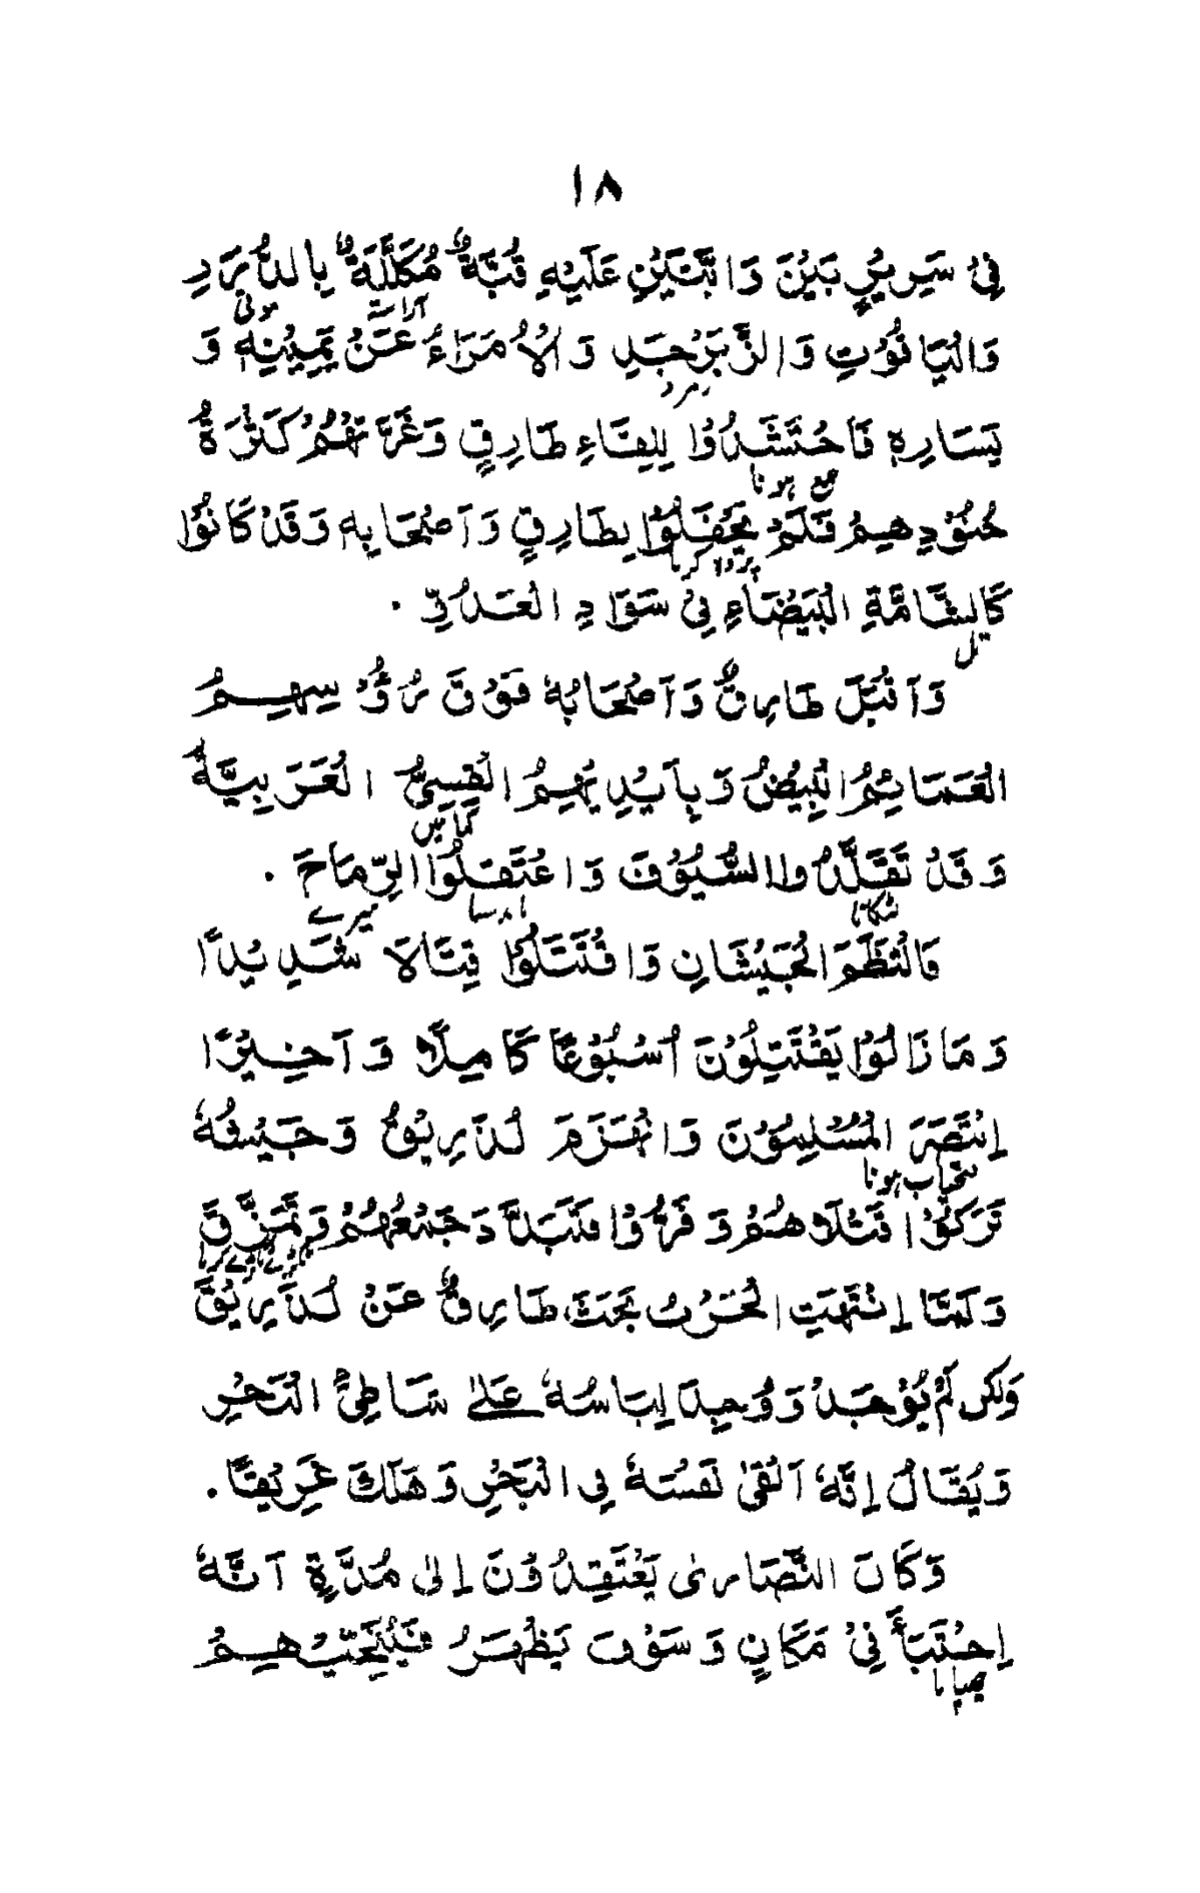 ١٨
فِىْ سَرِيْرٍ بَيْنَ دَابَّتَيْنِ عَلَيْهِ قُبَّةٌ مُكَلَّلَةٌ بِالدُّرَرِ
آراستہ
موتی
وَالْيَاقُوْتِ وَالزَّبَرْجَدِ وَالْاُمَرَاءُ عَنْ يَمِيْنِهٖ وَ
زمرد
يَسَارِهٖ فَاحْتَشَدُوْا لِلِقَاءِ طَارِقٍ وَغَرَّتْهُمْ كَثْرَةُ
جمع ہونا
جُنُوْدِهِمْ فَلَمْ يَحْفَلُوْا بِطَارِقٍ وَاَصْحَابِهٖ وَقَدْ كَانُوْا
پرواہ کرنا
كَالشَّامَّةِ الْبَيْضَاءِ فِىْ سَوَادِ الْعَدُوِّ ۔
تل
وَاَقْبَلَ طَارِقٌ وَاَصْحَابُهٗ فَوْقَ رُؤُوْسِهِمْ
الْعَمَائِمُ الْبِيْضُ وَبِاَيْدِيْهِمُ الْقِسِىُّ الْعَرَبِيَّةُ
کمانیں
وَقَدْ تَقَلَّدُوا السُّيُوْفَ وَاعْتَقَلُوْا الرِّمَاحَ ۔
لٹکانا
نیزے
فَالْتَظَمَ الْجَيْشَانِ وَاقْتَتَلُوْا قِتَالَا شَدِيْدًا
وَمَا زَالُوْا يَقْتَتِلُوْنَ اُسْبُوْعًا كَامِلًا وَآخِيْرًا
اِنْتَصَرَ الْمُسْلِمُوْنَ وَانْهَزَمَ لُذَرِيْقُ وَجَيْشُهٗ
تَرَكُوْا قَتْلَاهُمْ وَفَرُّوْا فَتَبَدَّدَ جَمْعُهُمْ وَتَمَزَّقَ
وَلَمَّا اِنْتَهَتِ الْحَرْبُ بَحَثَ طَارِقٌ عَنْ لُذَرِيْقَ
وَلٰكِنْ لَمْ يُوْجَدْ وَوُجِدَ لِبَاسُهٗ عَلٰى شَاطِئِ الْبَحْرِ
وَيُقَالُ اِنَّهٗ اَلْقٰى نَفْسَهٗ فِى الْبَحْرِ وَهَلَكَ غَرِيْقًا ۔
وَكَانَ النَّصَارىٰ يَعْتَقِدُوْنَ اِلىٰ مُدَّةٍ اَنَّهٗ
اِخْتَبَأَ فِىْ مَكَانٍ وَسَوْفَ يَظْهَرُ فَيُنْجِيْهِمْ
چھپانا